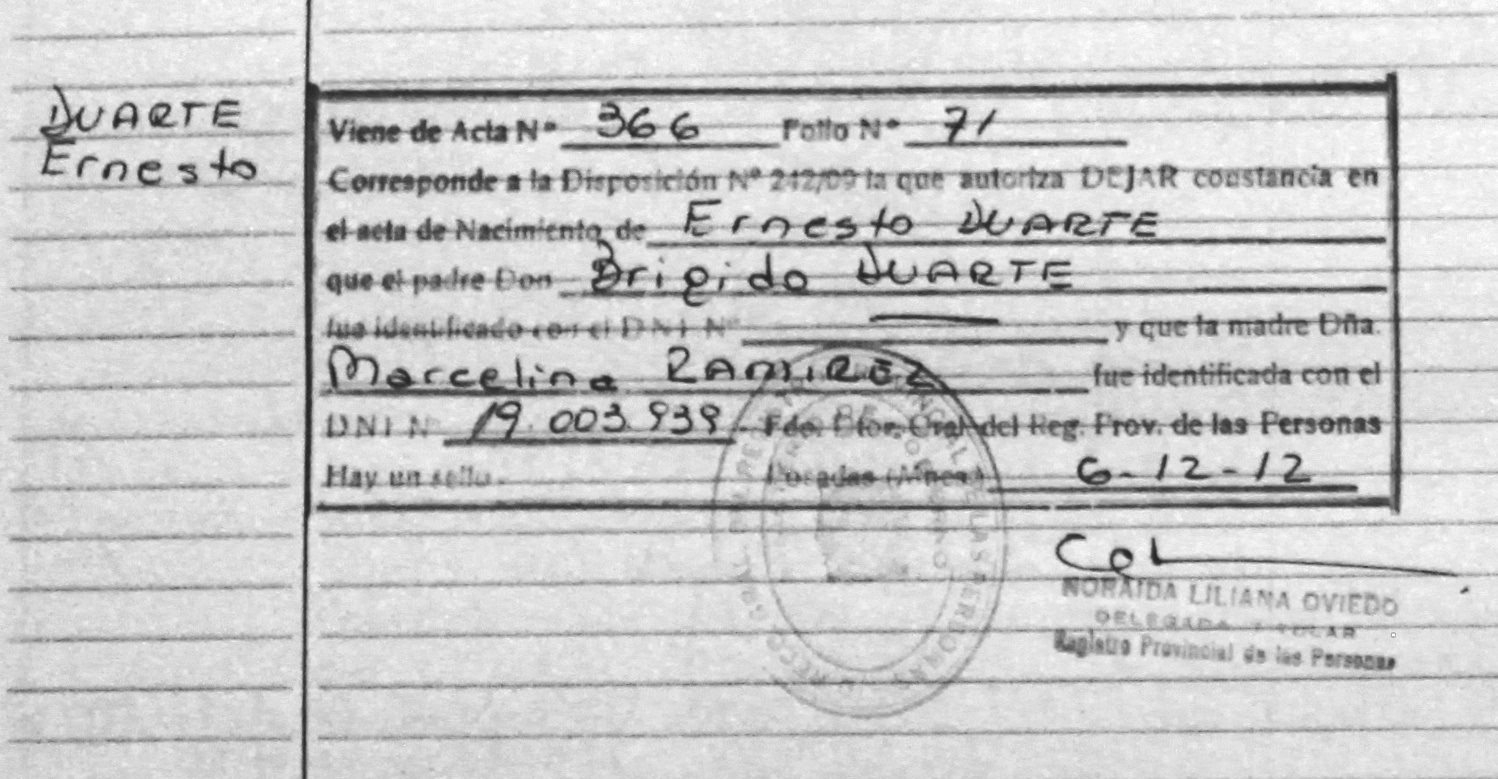 DUARTE
Ernesto
Viene de Acta Nº 366 Folio Nº 71
Corresponde a la Disposición Nº 242/09 la que autoriza DEJAR constancia en
el acta de Nacimiento, de Ernesto DUARTE
que el padre Don Brigido DUARTE
fue identificado con el DNI Nº — y que la madre Dña.
Marcelina RAMIREZ fue identificada con el
DNI N 19.003.939 Fdo. Dtor. Gral. del Reg. Prov. de las Personas
Hay un sello. Posadas (Mnes.) 6-12-12
NORAIDA LILIANA OVIEDO
DELEGADA TITULAR
Registro Provincial de las Personas